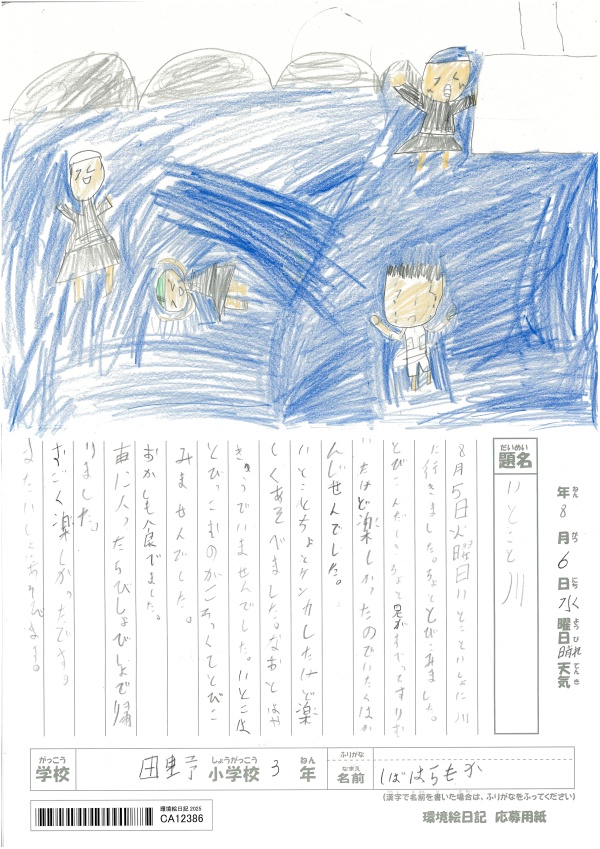 年 8月 6日 水曜日 晴れ 天気
ねん がつ にち ようび てんき
だいめい
題名
いとこと川
8月5日火曜日いとこといっしょに川
に行きました。ちょっととびこみました。
とびこんだときちょっと足が
いたけど楽しかったのでいたくはか
んじませんでした。
いとことちょっとケンカしたけど楽
しくあそべました。なおとはや
きゅうでいませんでした。いとこは
とびっこむのがこわくてとびこ
みませんでした。
おかしも食べました。
車に入ったらびしょびしょで帰
りました。
すごく楽しかったです。
がっこう
学校
しょうがっこう ねん
小学校 3年
ふりがな
なまえ
名前 しばはらもか
(漢字で名前を書いた場合は、ふりがなをふってください)
環境絵日記 2025
CA12386
環境絵日記 応募用紙